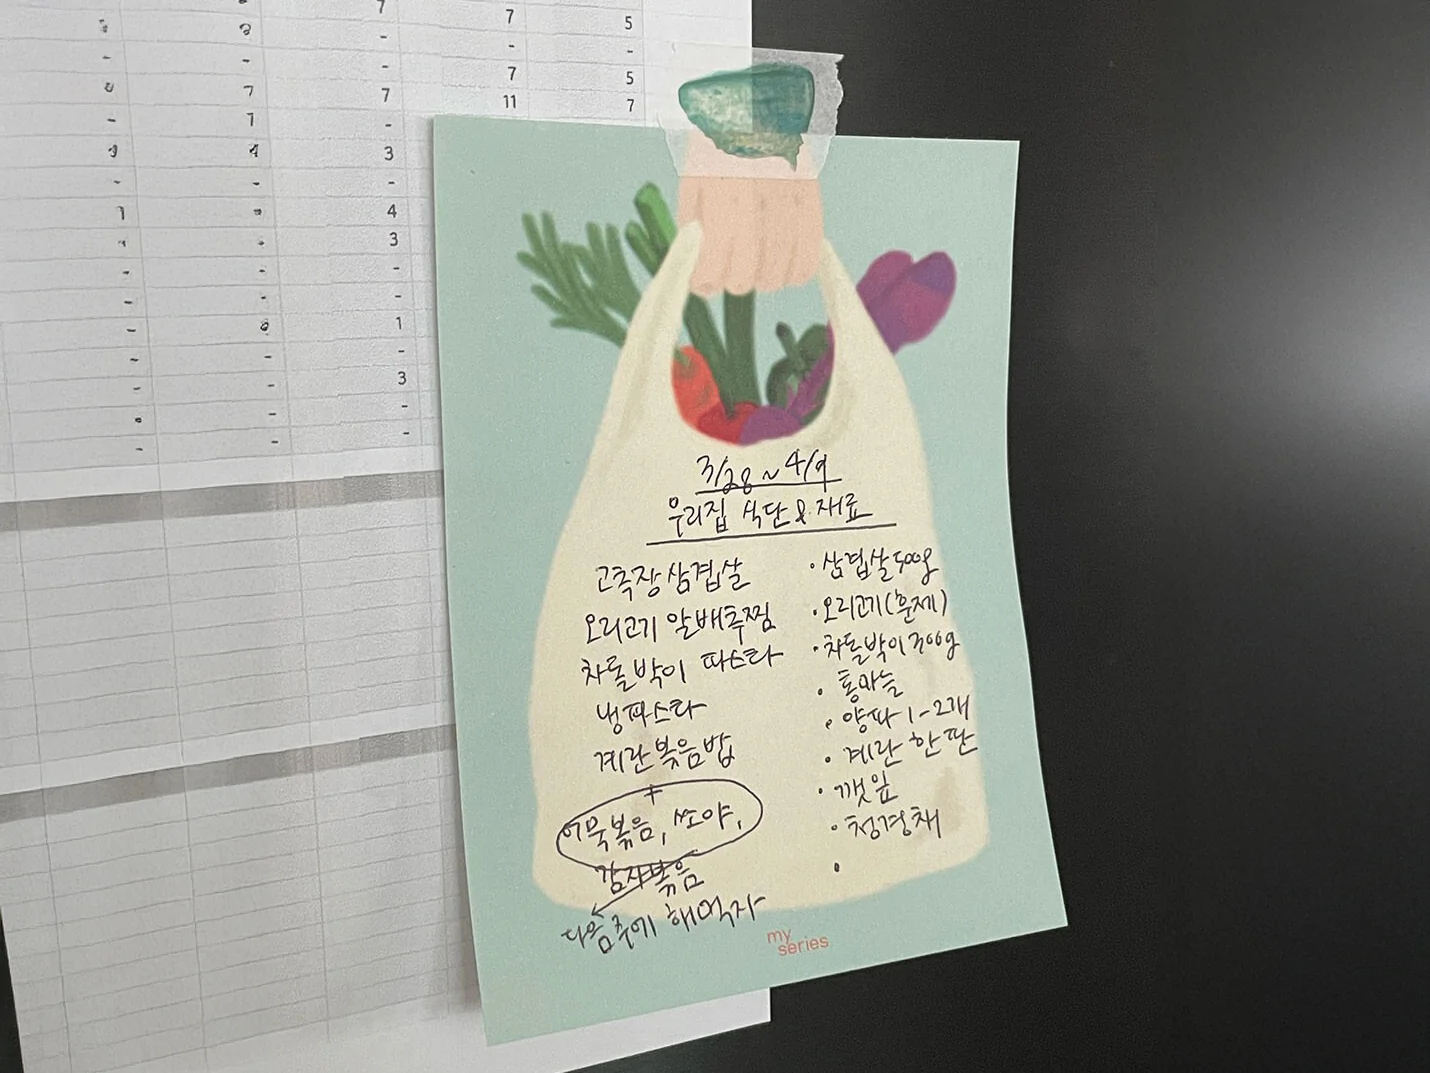 7 5
7 5
7 7 11 7
7
4 3
1 4
3
1
3
3/28 ~ 4/9
우리집 식단 & 재료
고추장 삼겹살
오리고기 알배추찜
차돌박이 파스타
냉파스타
계란볶음밥
+
어묵볶음, 쏘야,
감자볶음
다음주에 해먹자
· 삼겹살 500g
· 오리고기(훈제)
· 차돌박이 300g
· 통마늘
· 양파 1-2개
· 계란 한판
· 깻잎
· 청경채
·
my
series